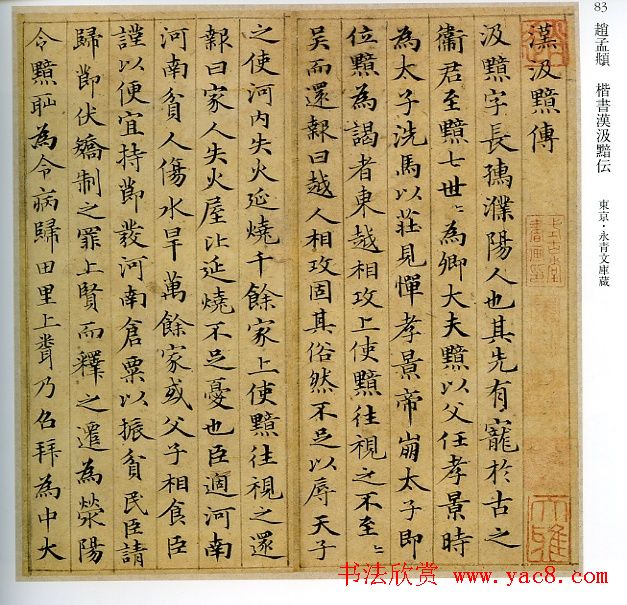 83
趙孟頫　楷書漢汲黯伝
東京・永青文庫蔵
漢汲黯傳
汲黯字長孺濮陽人也其先有寵於古之
衞君至黯七世〻為卿大夫黯以父任孝景時
為太子洗馬以莊見憚孝景帝崩太子即
位黯為謁者東越相攻上使黯往視之不至〻
吴而還報曰越人相攻固其俗然不足以辱天子
之使河内失火延燒千餘家上使黯往視之還
報曰家人失火屋比延燒不足憂也臣適河南
河南貧人傷水旱萬餘家或父子相食臣
謹以便宜持節發河南倉粟以振貧民臣請
歸節伏矯制之罪上賢而釋之遷為滎陽
令黯恥為令病歸田里上聞乃召拜為中大
式古堂書畫印
大雅
书法欣赏 www.yac8.com